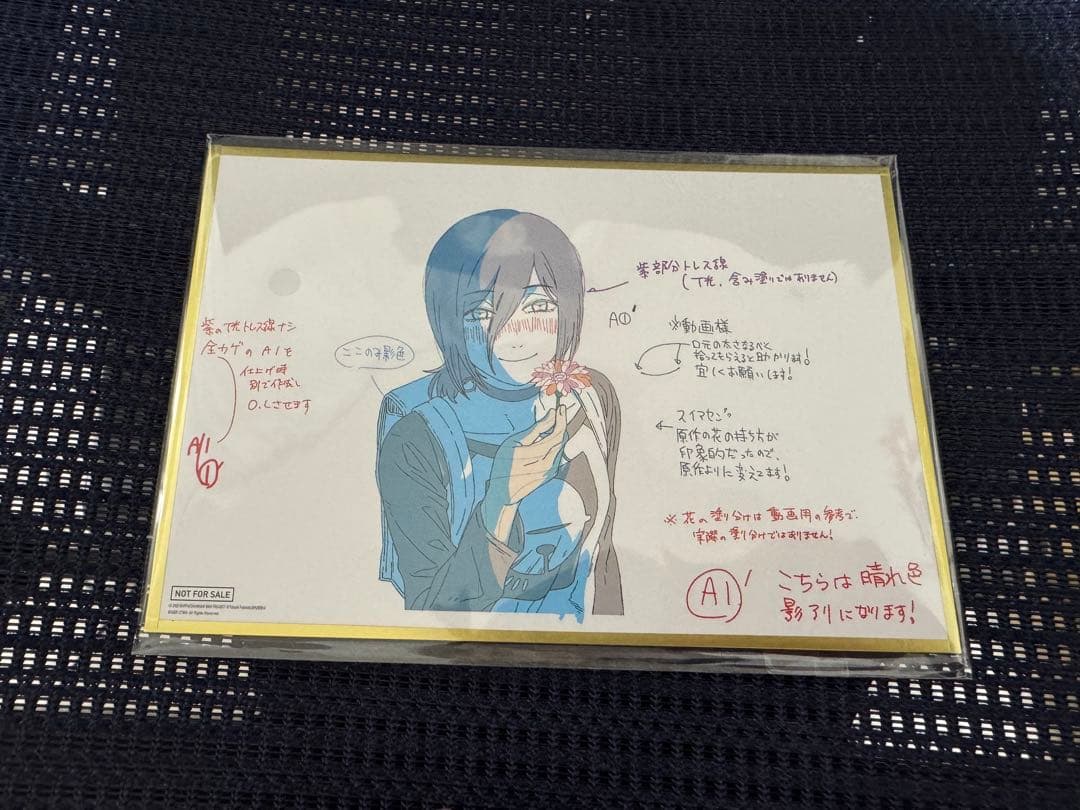 紫部分トレス線
(T光、含み塗りではありません)
A①'
※動画様
口元の太さなるべく
拾ってもらえると助かります!
宜しくお願いします!
スイマセン。
原作の花の持ち方が
印象的だったので、
原作よりに変えてます!
※花の塗り分けは動画用の参考で、
実際の塗り分けではありません!
A1'
こちらは晴れ色
影アリになります!
紫のT光トレス線ナシ
全カゲのA1を
仕上げ時
別で作成し
O.Lさせます
A1
①
ここのみ影色
NOT FOR SALE
All Rights Reserved.